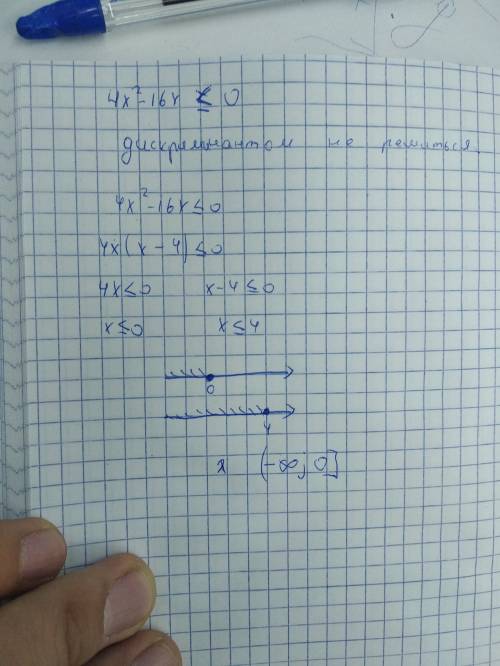 4x²-16x ≤ 0
дискреминантом не решиться.
4x²-16x≤0
4x(x-4)≤0
4x≤0 x-4≤0
x≤0 x≤4
0
4
x (-∞; 0]